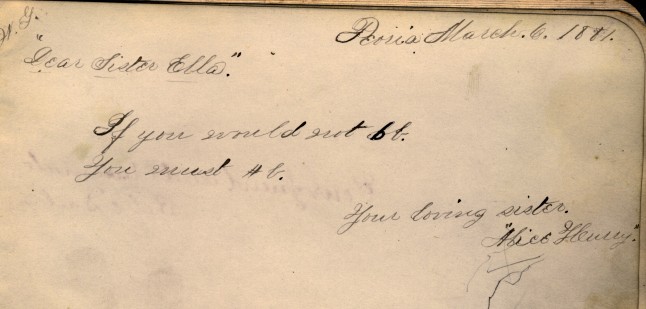 Peoria March. 6. 1881.
"Dear Sister Ella."
If you would not bb.
You must #b.
Your loving sister.
"Alice Henry".